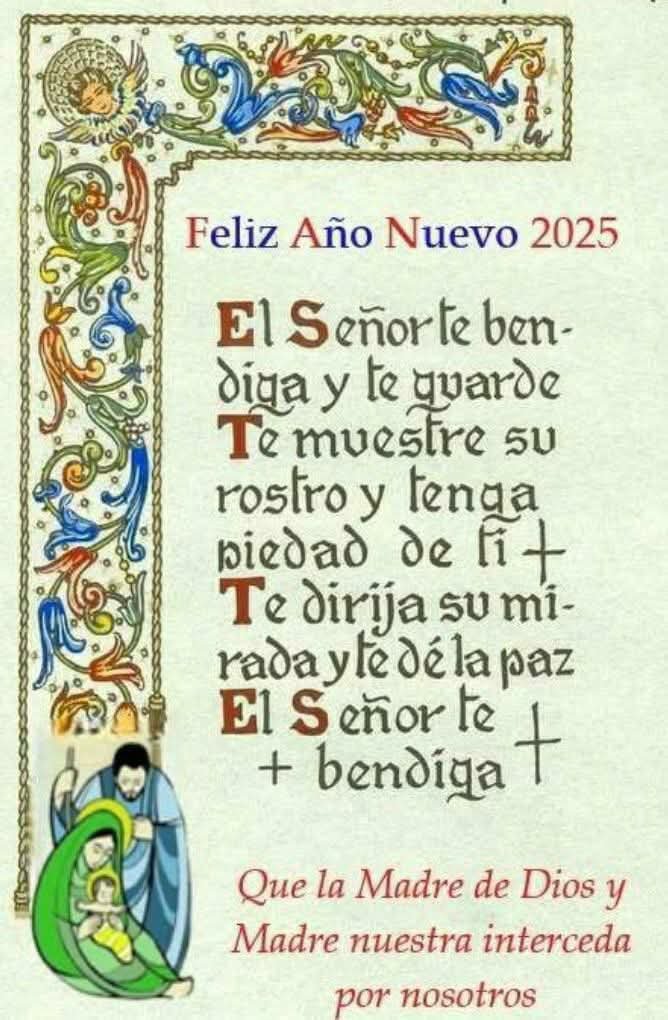 Feliz Año Nuevo 2025
El Señor te ben-
diga y te guarde
Te muestre su
rostro y tenga
piedad de ti +
Te dirija su mi-
rada y te dé la paz
El Señor te
+ bendiga +
Que la Madre de Dios y
Madre nuestra interceda
por nosotros